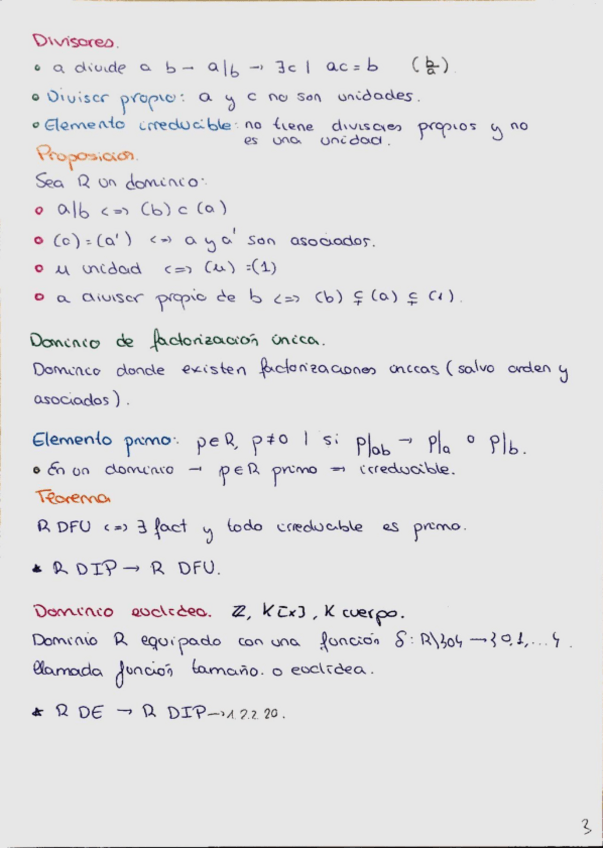 Divisores.
• a divide a b → a|b → ∃c | ac = b (b/a)
• Divisor propio: a y c no son unidades.
• Elemento irreducible: no tiene divisores propios y no
es una unidad.
Proposición.
Sea R un dominio:
• a|b <=> (b) c (a)
• (a) = (a') <=> a y a' son asociados.
• u unidad <=> (u) = (1)
• a divisor propio de b <=> (b) ⊊ (a) ⊊ (1).
Dominio de factorización única.
Dominio donde existen factorizaciones únicas (salvo orden y
asociados).
Elemento primo: p∈R, p≠0 | si p|ab → p|a o p|b.
• En un dominio → p∈R primo => irreducible.
Teorema
R DFU <=> ∃ fact y todo irreducible es primo.
* R DIP → R DFU.
Dominio euclídeo. ℤ, K[x], K cuerpo.
Dominio R equipado con una función δ: R\{0} → {0,1,...}.
llamada función tamaño. o euclídea.
* R DE → R DIP → 1.2.2.20.
3